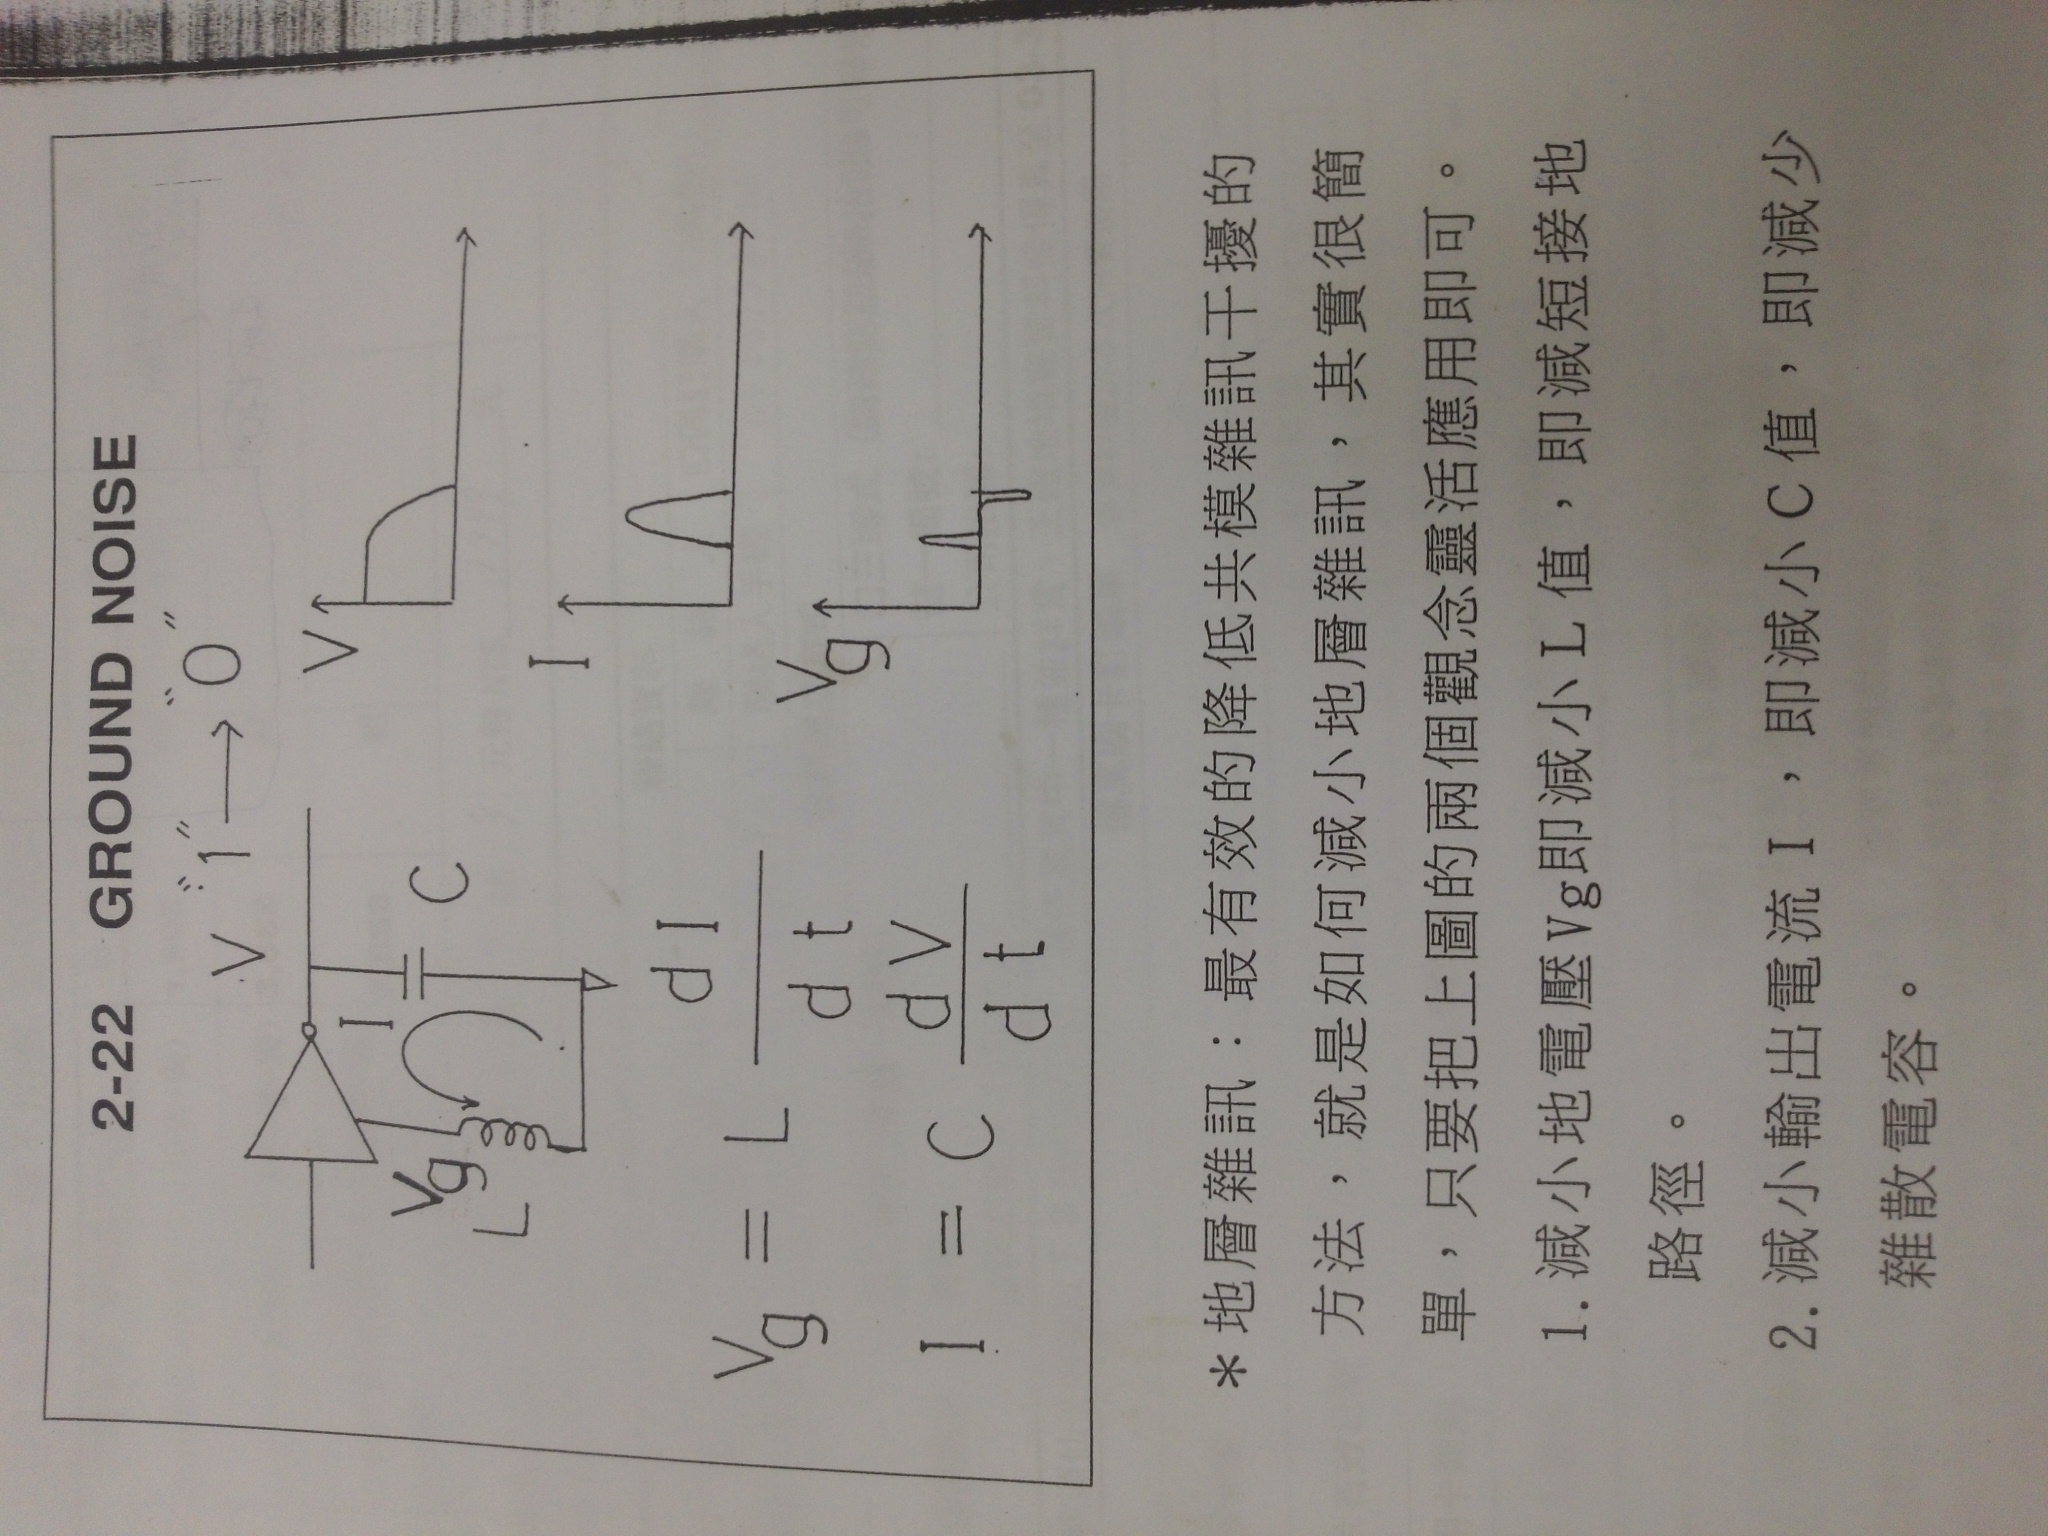 2-22 GROUND NOISE
V "1" → "0"
I
C
Vg
L
V
I
Vg
Vg = L dI/dt
I = C dV/dt
*地層雜訊：最有效的降低共模雜訊干擾的
方法，就是如何減小地層雜訊，其實很簡
單，只要把上圖的兩個觀念靈活應用即可。
1.減小地電壓Vg即減小L值，即減短接地
路徑。
2.減小輸出電流I，即減小C值，即減少
雜散電容。